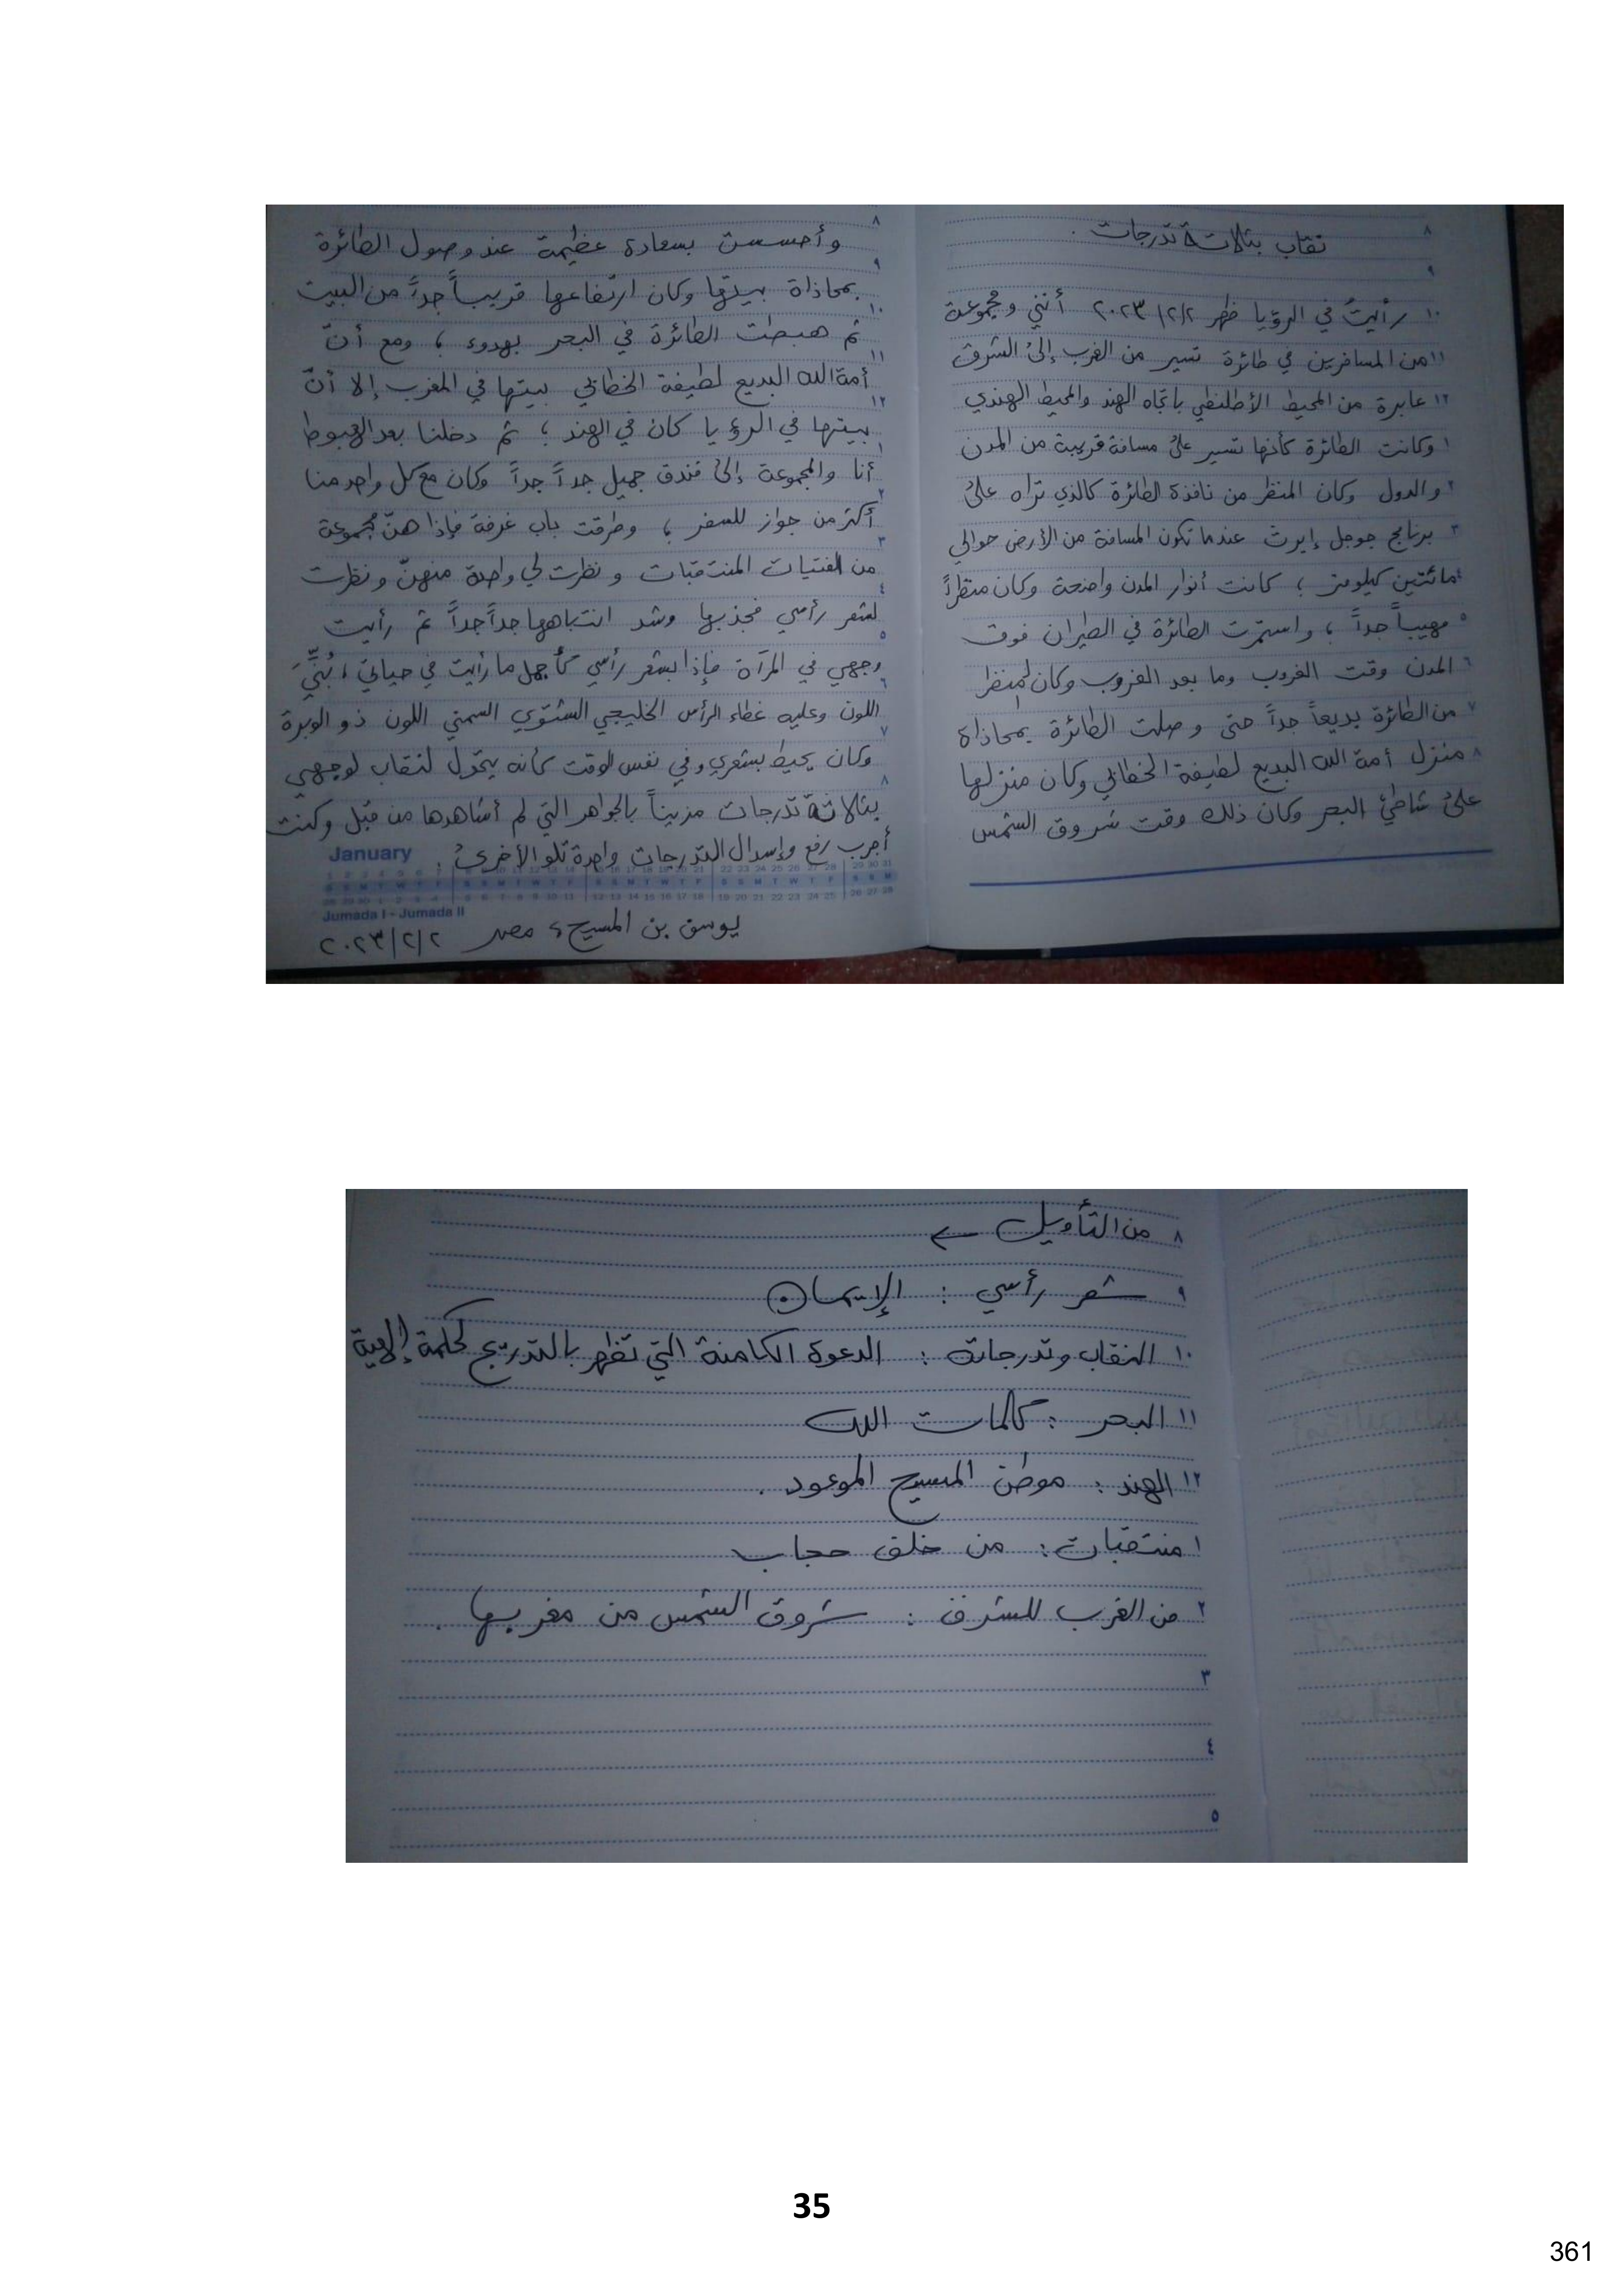 نقاب بثلاثة تدرجات .
رأيتُ في الرؤيا ظهر ٢٠٢٣/٢/٢ أنني ومجموعة
من المسافرين في طائرة تسير من الغرب إلىٰ الشرق
عابرة من المحيط الأطلنطي باتجاه الهند والمحيط الهندي
وكانت الطائرة كأنها تسير علىٰ مسافة قريبة من المدن
والدول وكان المنظر من نافذة الطائرة كالذي تراه علىٰ
برنامج جوجل إيرث عندما تكون المسافة من الأرض حوالي
مائتين كيلومتر ؛ كانت أنوار المدن واضحة وكان منظراً
مهيباً جداً ؛ واستمرت الطائرة في الطيران فوق
المدن وقت الغروب وما بعد الغروب وكان المنظر
من الطائرة بديعاً جداً حتى وصلت الطائرة بمحاذاة
منزل أمة الله البديع لطيفة الخطابي وكان منزلها
علىٰ شاطئ البحر وكان ذلك وقت شروق الشمس
وأحسست بسعادة عظيمة عند وصول الطائرة
بمحاذاة بيتها وكان ارتفاعها قريباً جداً من البيت
ثم هبطت الطائرة في البحر بهدوء ؛ ومع أنّ
أمة الله البديع لطيفة الخطابي بيتها في المغرب إلا أنّ
بيتها في الرؤيا كان في الهند ؛ ثم دخلنا بعد الهبوط
أنا والمجموعة إلىٰ فندق جميل جداً جداً وكان مع كل واحد منا
أكثر من جواز للسفر ؛ وطرقت باب غرفة فإذا هنّ مجموعة
من الفتيات المنتقبات ونظرت لي واحدة منهنّ ونظرت
لشعر رأسي فجذبها وشد انتباهها جداً جداً ثم رأيت
وجهي في المرآة فإذا بشعر رأسي كأجمل ما رأيت في حياتي ، بُنِّيَّ
اللون وعليه غطاء الرأس الخليجي الشتوي السمني اللون ذو الوبرة
وكان يحيط بشعري وفي نفس الوقت كأنه يتحول لنقاب لوجهي
بثلاثة تدرجات مزيناً بالجواهر التي لم أشاهدها من قبل وكنت
أجرب رفع وإسدال التدرجات واحدة تلو الأخرىٰ .
January
Jumada I - Jumada II
يوسف بن المسيح ، مصر ٢٠٢٣/٢/٢
٨ من التأويل ←
٩ شعر رأسي : الإيمان
١٠ النقاب وتدرجاته : الدعوة الكامنة التي تظهر بالتدريج لحكمة إلهية
١١ البحر : كلمات الله
١٢ الهند : موطن المسيح الموعود .
١ منتقبات : من خلف حجاب
٢ من الغرب للشرق : شروق الشمس من مغربها .
٣
٤
٥
35
361